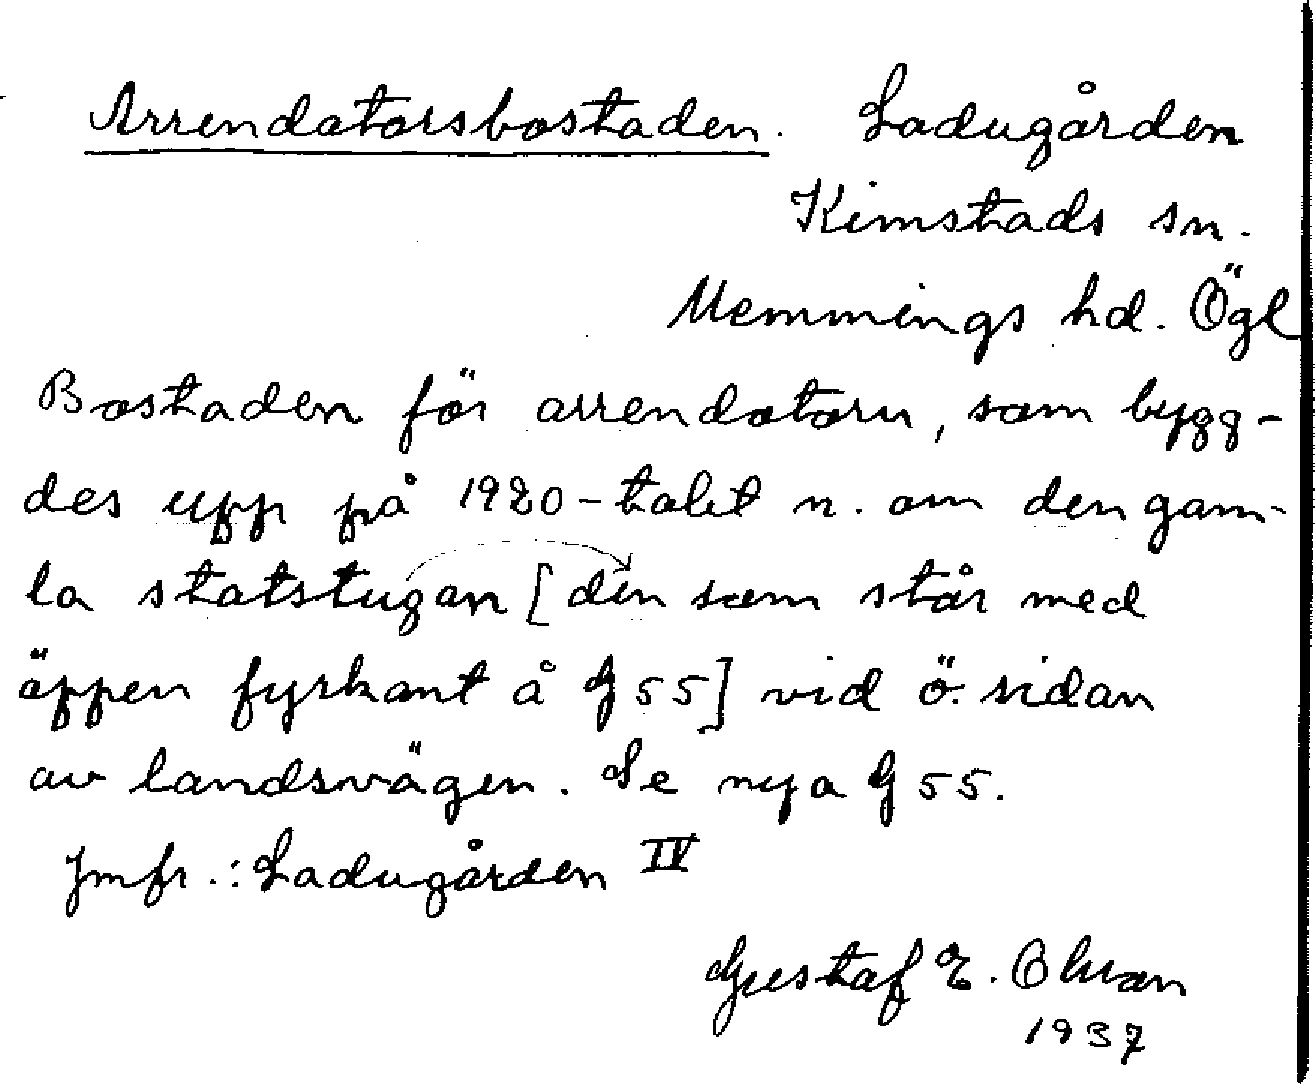 Arrendatorsbostaden. Ladugården
Kimstads sn.
Memmings hd. Ögl
Bostaden för arrendatorn, som bygg-
des upp på 1920-talet n. om den gam-
la statstugan [den som står med
äppen fyrkant å G 55] vid ö. sidan
av landsvägen. Se nya G 55.
Jmfr.: Ladugården IV
Gustaf E.
1937